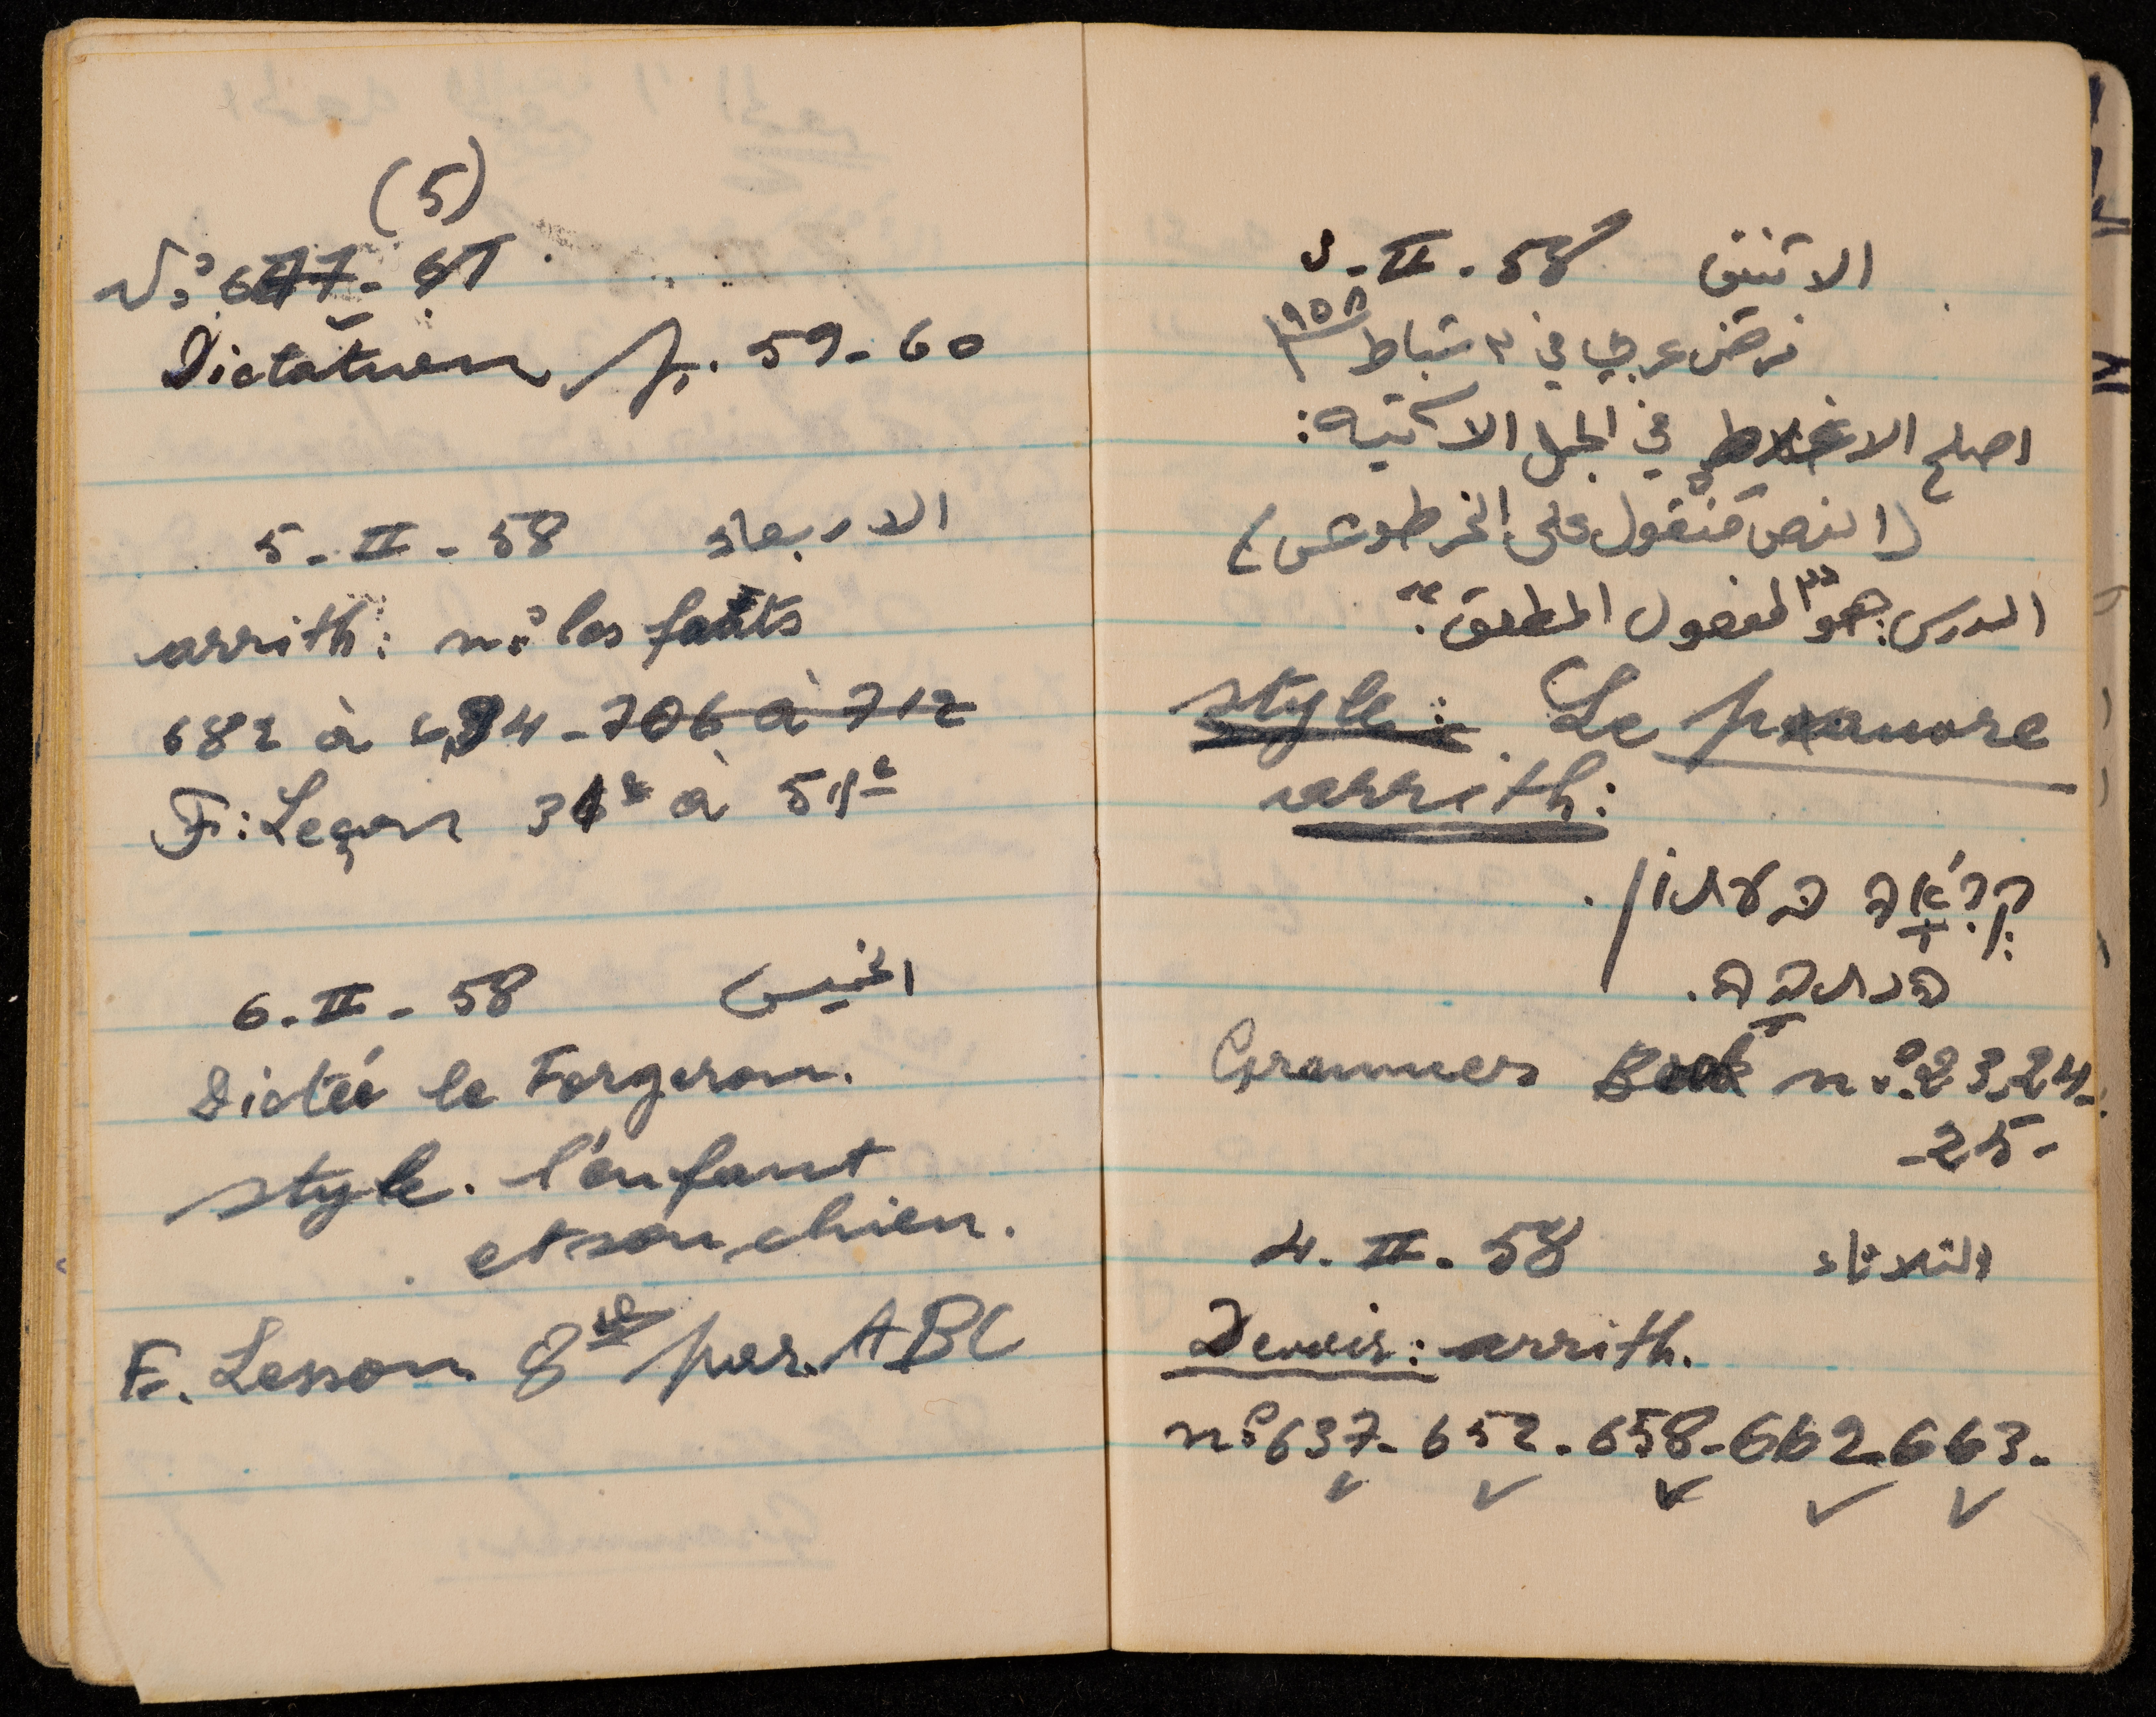 الاثنين 3-II-58
فرض عربي في ٣ شباط ١٩٥٨
اصلح الاغلاط في الجمل الآتية:
(النص منقول على الخرطوش)
الدرس: هو "المفعول المطلق".
style: Le pauvre
arrith:
קריאה העתון.
הכתבה.
Grammer Book n° 23 24-
-25-
الثلاثاء 4-II-58
Devoir: arrith.
n° 637-652-658-662-663-
(5)
N° 677-
p. 59-60
الاربعاء 5-II-58
arrith: n° les faits
682 à 694-706 à 712
F: Leçon
الخميس 6-II-58
Dictée le Forgeron.
style. l'enfant
et son chien.
E. Lesson 8 par. ABC